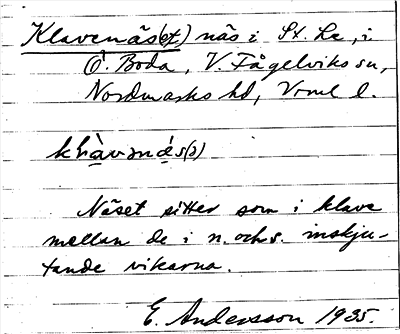 Klavenäs(et) näs i St. Le, i
Ö. Boda, V. Fågelviks sn,
Nordmarks hd, Vrml l.
klàvənés(ə)
Näset sitter som i klave
mellan de i n. och s. inskju-
tande vikarna.
E. Andersson 1935.